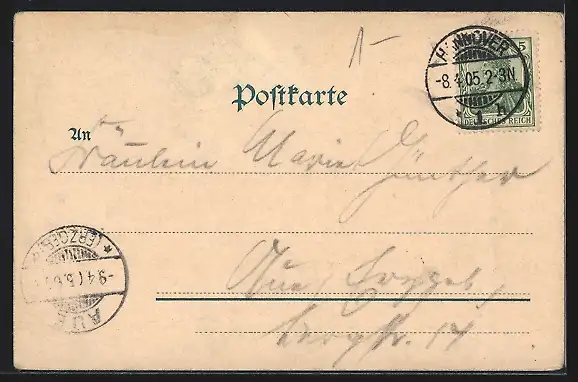 1
HANNOVER
-8.4.05.2-3N
* 1 h
5
DEUTSCHES REICH
Postkarte
An
Fräulein Marie Günther
* (ERZGEB.)
-9.4
AUE
Aue, Erzgeb,
bergstr. 14